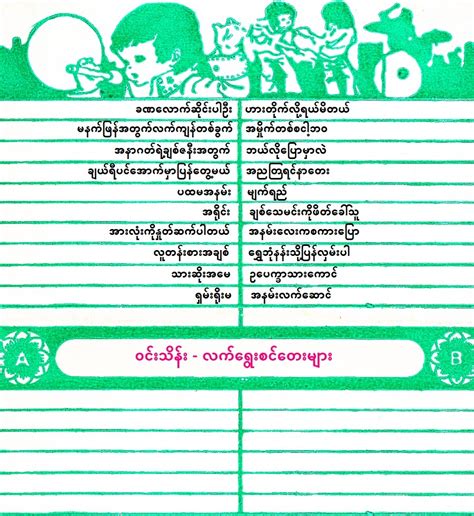 ခဏလောက်ဆိုင်းပါဦး ဟားတိုက်လို့ရယ်မိတယ်
မနက်ဖြန်အတွက်လက်ကျန်တစ်ခွက် အမှိုက်တစ်စငါ့ဘဝ
အနာဂတ်ရဲ့ချစ်ဇနီးအတွက် ဘယ်လိုပြောမှာလဲ
ချယ်ရီပင်အောက်မှာပြန်တွေ့မယ် အညတြရင်နာတေး
ပထမအနမ်း မျက်ရည်
အရိုင်း ချစ်သေမင်းကိုဖိတ်ခေါ်သူ
အားလုံးကိုနှုတ်ဆက်ပါတယ် အနမ်းလေးကစကားပြော
လူတန်းစားအချစ် ရွှေဘုံနန်းသို့ပြန်လှမ်းပါ
သားဆိုးအမေ ဥပေက္ခာသားကောင်
ရှမ်းရိုးမ အနမ်းလက်ဆောင်
A ဝင်းသိန်း - လက်ရွေးစင်တေးများ B